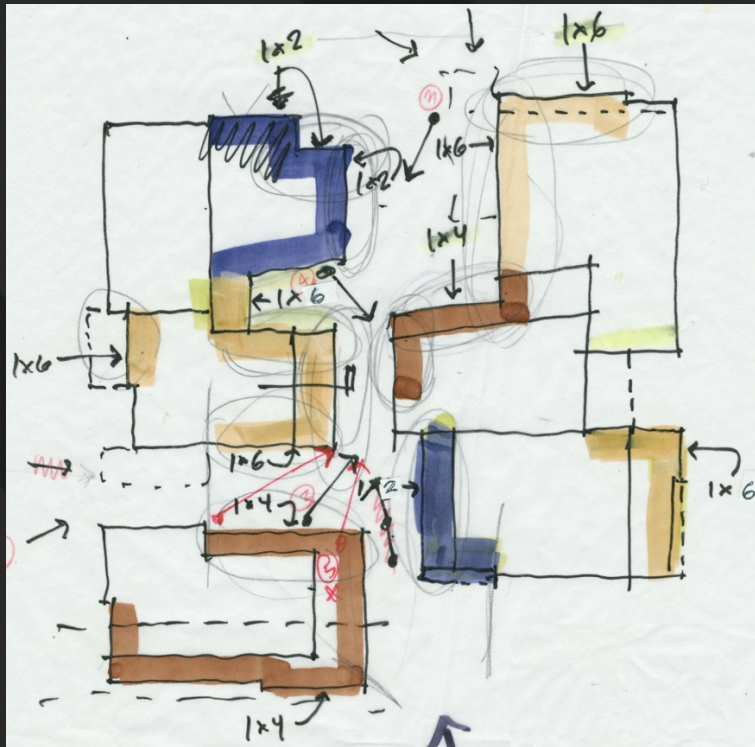 1x2
1x6
1x6
1x2
1x4
1x6
1x6
1x6
1x4
1x2
1x6
3
1x4